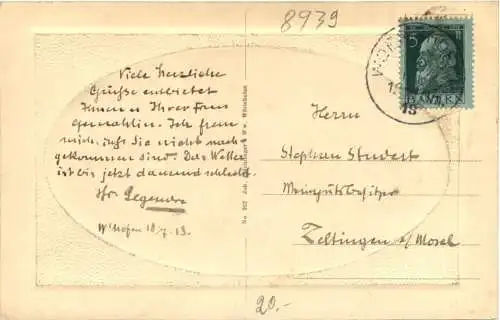 8939
Viele herzliche
Grüße entbietet
Ihnen u Ihrer Frau
Gemahlin. Ich freu
mich, daß Sie nicht nach-
gekommen sind. Das Wetter
ist bis jetzt dauernd schlecht.
Ihr
W'hofen 18.7.13.
5
BAYERN
Herrn
Stephan Studert
Weingutsbesitzer
Zeltingen a/Mosel
20.-